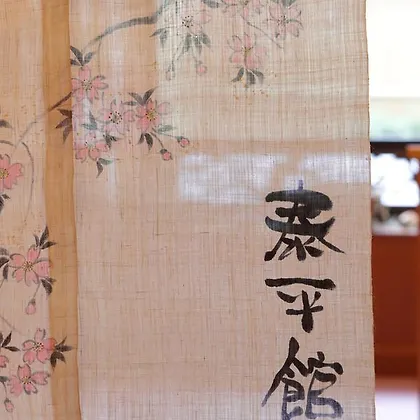 泰平館